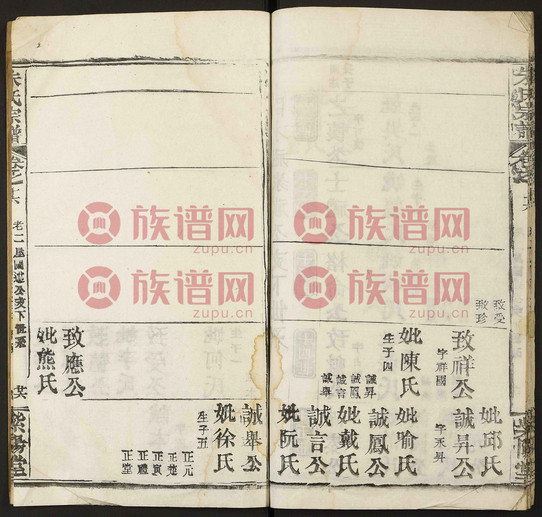 致受
致珍
致祥公
字祥國
妣陳氏
生子四
誠昇
誠鳳
誠言
誠舉
妣邱氏
誠昇公
字禾昇
妣喻氏
誠鳳公
妣戴氏
誠言公
妣阮氏
誠舉公
妣徐氏
生子五
正元
正楚
正寅
正禮
正堂
致應公
妣熊氏
朱氏宗譜
卷之十六
紫陽堂
族谱网
zupu.cn
族谱网
zupu.cn
族谱网
zupu.cn
族谱网
zupu.cn